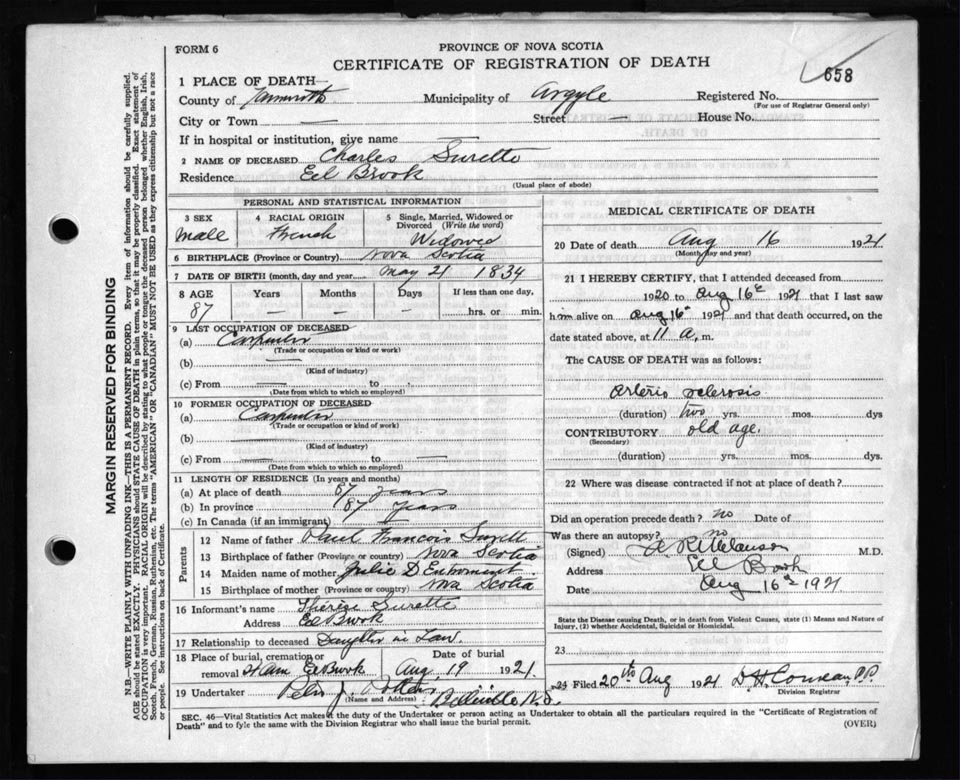 FORM 6
PROVINCE OF NOVA SCOTIA
CERTIFICATE OF REGISTRATION OF DEATH
658
1 PLACE OF DEATH—
County of Yarmouth Municipality of Argyle Registered No.
(For use of Registrar General only)
City or Town — Street — House No.
If in hospital or institution, give name —
2 NAME OF DECEASED Charles Surette
Residence Eel Brook
(Usual place of abode)
PERSONAL AND STATISTICAL INFORMATION
3 SEX
male
4 RACIAL ORIGIN
French
5 Single, Married, Widowed or Divorced (Write the word)
Widowed
6 BIRTHPLACE (Province or Country) Nova Scotia
7 DATE OF BIRTH (month, day and year) May 21 1834
8 AGE Years Months Days If less than one day,
87 — — — hrs. or min.
9 LAST OCCUPATION OF DECEASED
(a) Carpenter
(Trade or occupation or kind of work)
(b) —
(Kind of industry)
(c) From — to
(Date from which to which so employed)
10 FORMER OCCUPATION OF DECEASED
(a) Carpenter
(Trade or occupation or kind of work)
(b)
(Kind of industry)
(c) From — to —
(Date from which to which so employed)
11 LENGTH OF RESIDENCE (In years and months)
(a) At place of death 87 years
(b) In province 87 years
(c) In Canada (if an immigrant) —
Parents
12 Name of father Paul Francois Surett
13 Birthplace of father (Province or country) Nova Scotia
14 Maiden name of mother Julie D Entremont
15 Birthplace of mother (Province or country) Nova Scotia
16 Informant's name Therese Surette
Address Eel Brook
17 Relationship to deceased Daughter in Law
18 Place of burial, cremation or removal Eel Brook
Date of burial
Aug 19 1921
19 Undertaker J.
(Name and Address) Belleville N.S.
MEDICAL CERTIFICATE OF DEATH
20 Date of death Aug 16 1921
(Month, day and year)
21 I HEREBY CERTIFY, that I attended deceased from
1920 to Aug 16th 1921 that I last saw
him alive on Aug 16th 1921 and that death occurred, on the
date stated above, at 11 a. m.
The CAUSE OF DEATH was as follows:
Arterio sclerosis
(duration) two yrs. mos. dys
CONTRIBUTORY old age.
(Secondary)
(duration) yrs. mos. dys
22 Where was disease contracted if not at place of death?
Did an operation precede death? no Date of
Was there an autopsy? no
(Signed) M.D.
Address Eel Brook
Date Aug 16th 1921
State the Disease causing Death, or in death from Violent Causes, state (1) Means and Nature of Injury, (2) whether Accidental, Suicidal or Homicidal.
23
24 Filed 20th Aug 1921 P.P.
Division Registrar
SEC. 46—Vital Statistics Act makes it the duty of the Undertaker or person acting as Undertaker to obtain all the particulars required in the "Certificate of Registration of
Death" and to fyle the same with the Division Registrar who shall issue the burial permit.
(OVER)
MARGIN RESERVED FOR BINDING
N.B.—WRITE PLAINLY WITH UNFADING INK—THIS IS A PERMANENT RECORD. Every item of information should be carefully supplied.
AGE should be stated EXACTLY. PHYSICIANS should STATE CAUSE OF DEATH in plain terms, so that it may be properly classified. Exact statement of
OCCUPATION is very important. RACIAL ORIGIN will be described by stating to what people or tongue the deceased person belonged whether English, Irish,
Scotch, French, German, Russian, Ruthenian, etc. The terms "AMERICAN" OR "CANADIAN" MUST NOT BE USED as they express citizenship but not a race
or people. See instructions on back of Certificate.